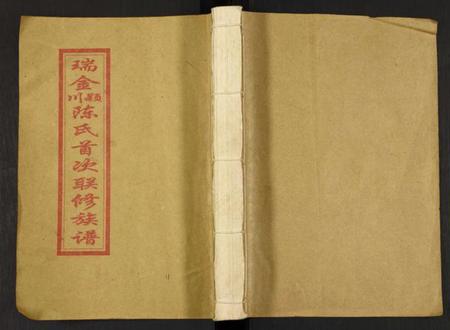 瑞金颍川陈氏首次联修族谱